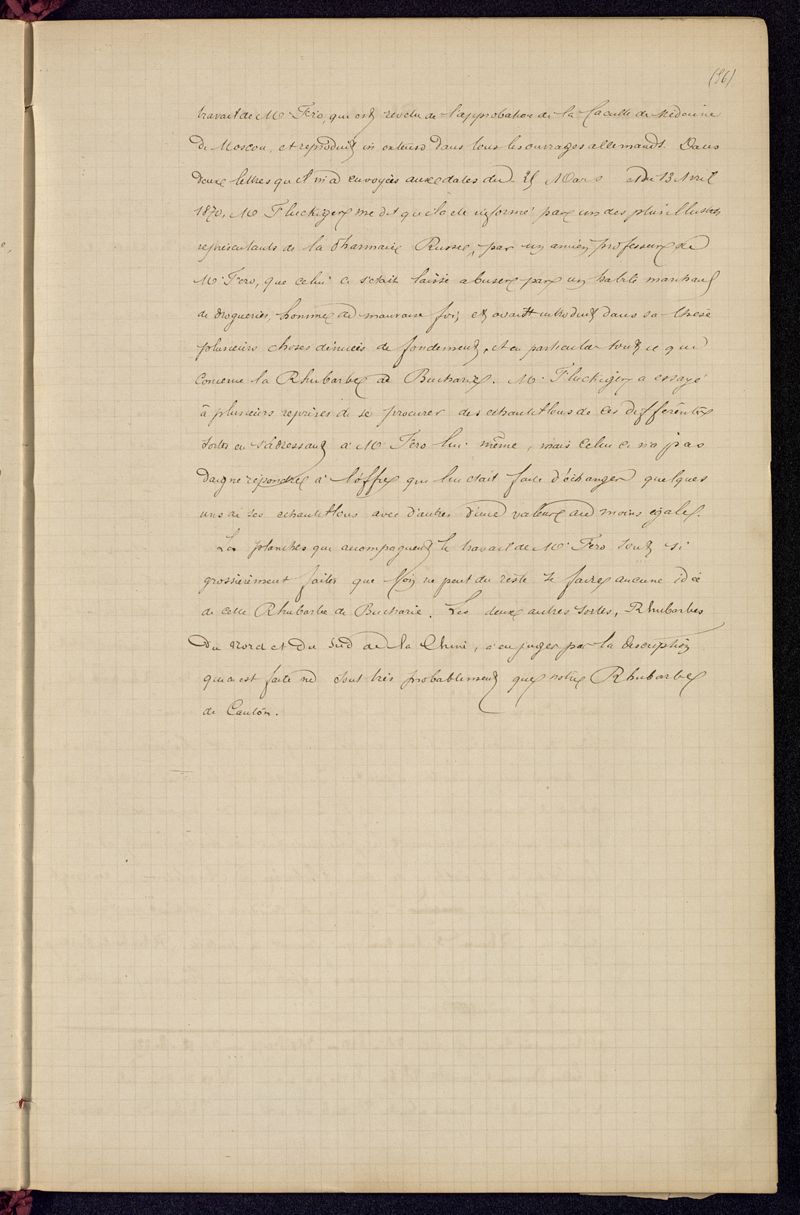 (96)
travail de Mr Fero, qui est revetu de l'approbation de la faculté de Médecine
de Moscou, et reproduit in extenso dans tous les ouvrages allemands. Dans
deux lettres qu'il m'a envoyées aux dates du 25 Mars et du 13 Avril
1870, Mr Fluckiger me dit qu'il a été informé par un des plus illustres
représentants de la Pharmacie Russe, par un ancien professeur de
Mr Fero, que celui ci s'était laissé abuser par un habile marchand
de drogueries, homme de mauvaise foi, et avait introduit dans sa thèse
plusieurs choses dénuées de fondement, et en particulier tout ce qui
concerne la Rhubarbe de Bucharie. Mr Fluckiger a essayé
à plusieurs reprises de se procurer des echantillons de ces différentes
sortes en s'adressant à Mr Fero lui même, mais celui ci n'a pas
daigné répondre à l'offre qui lui était faite d'échanger quelques
uns de ses echantillons avec d'autres d'une valeur au moins égale.
Les planches qui accompagnent le travail de Mr Fero sont si
grossièrement faites que l'on ne peut du reste se faire aucune idée
de cette Rhubarbe de Bucharie. Les deux autres sortes, Rhubarbes
du Nord et du Sud de la Chine, à en juger par la description
qui en est faite ne sont très probablement que notre Rhubarbe
de Canton.